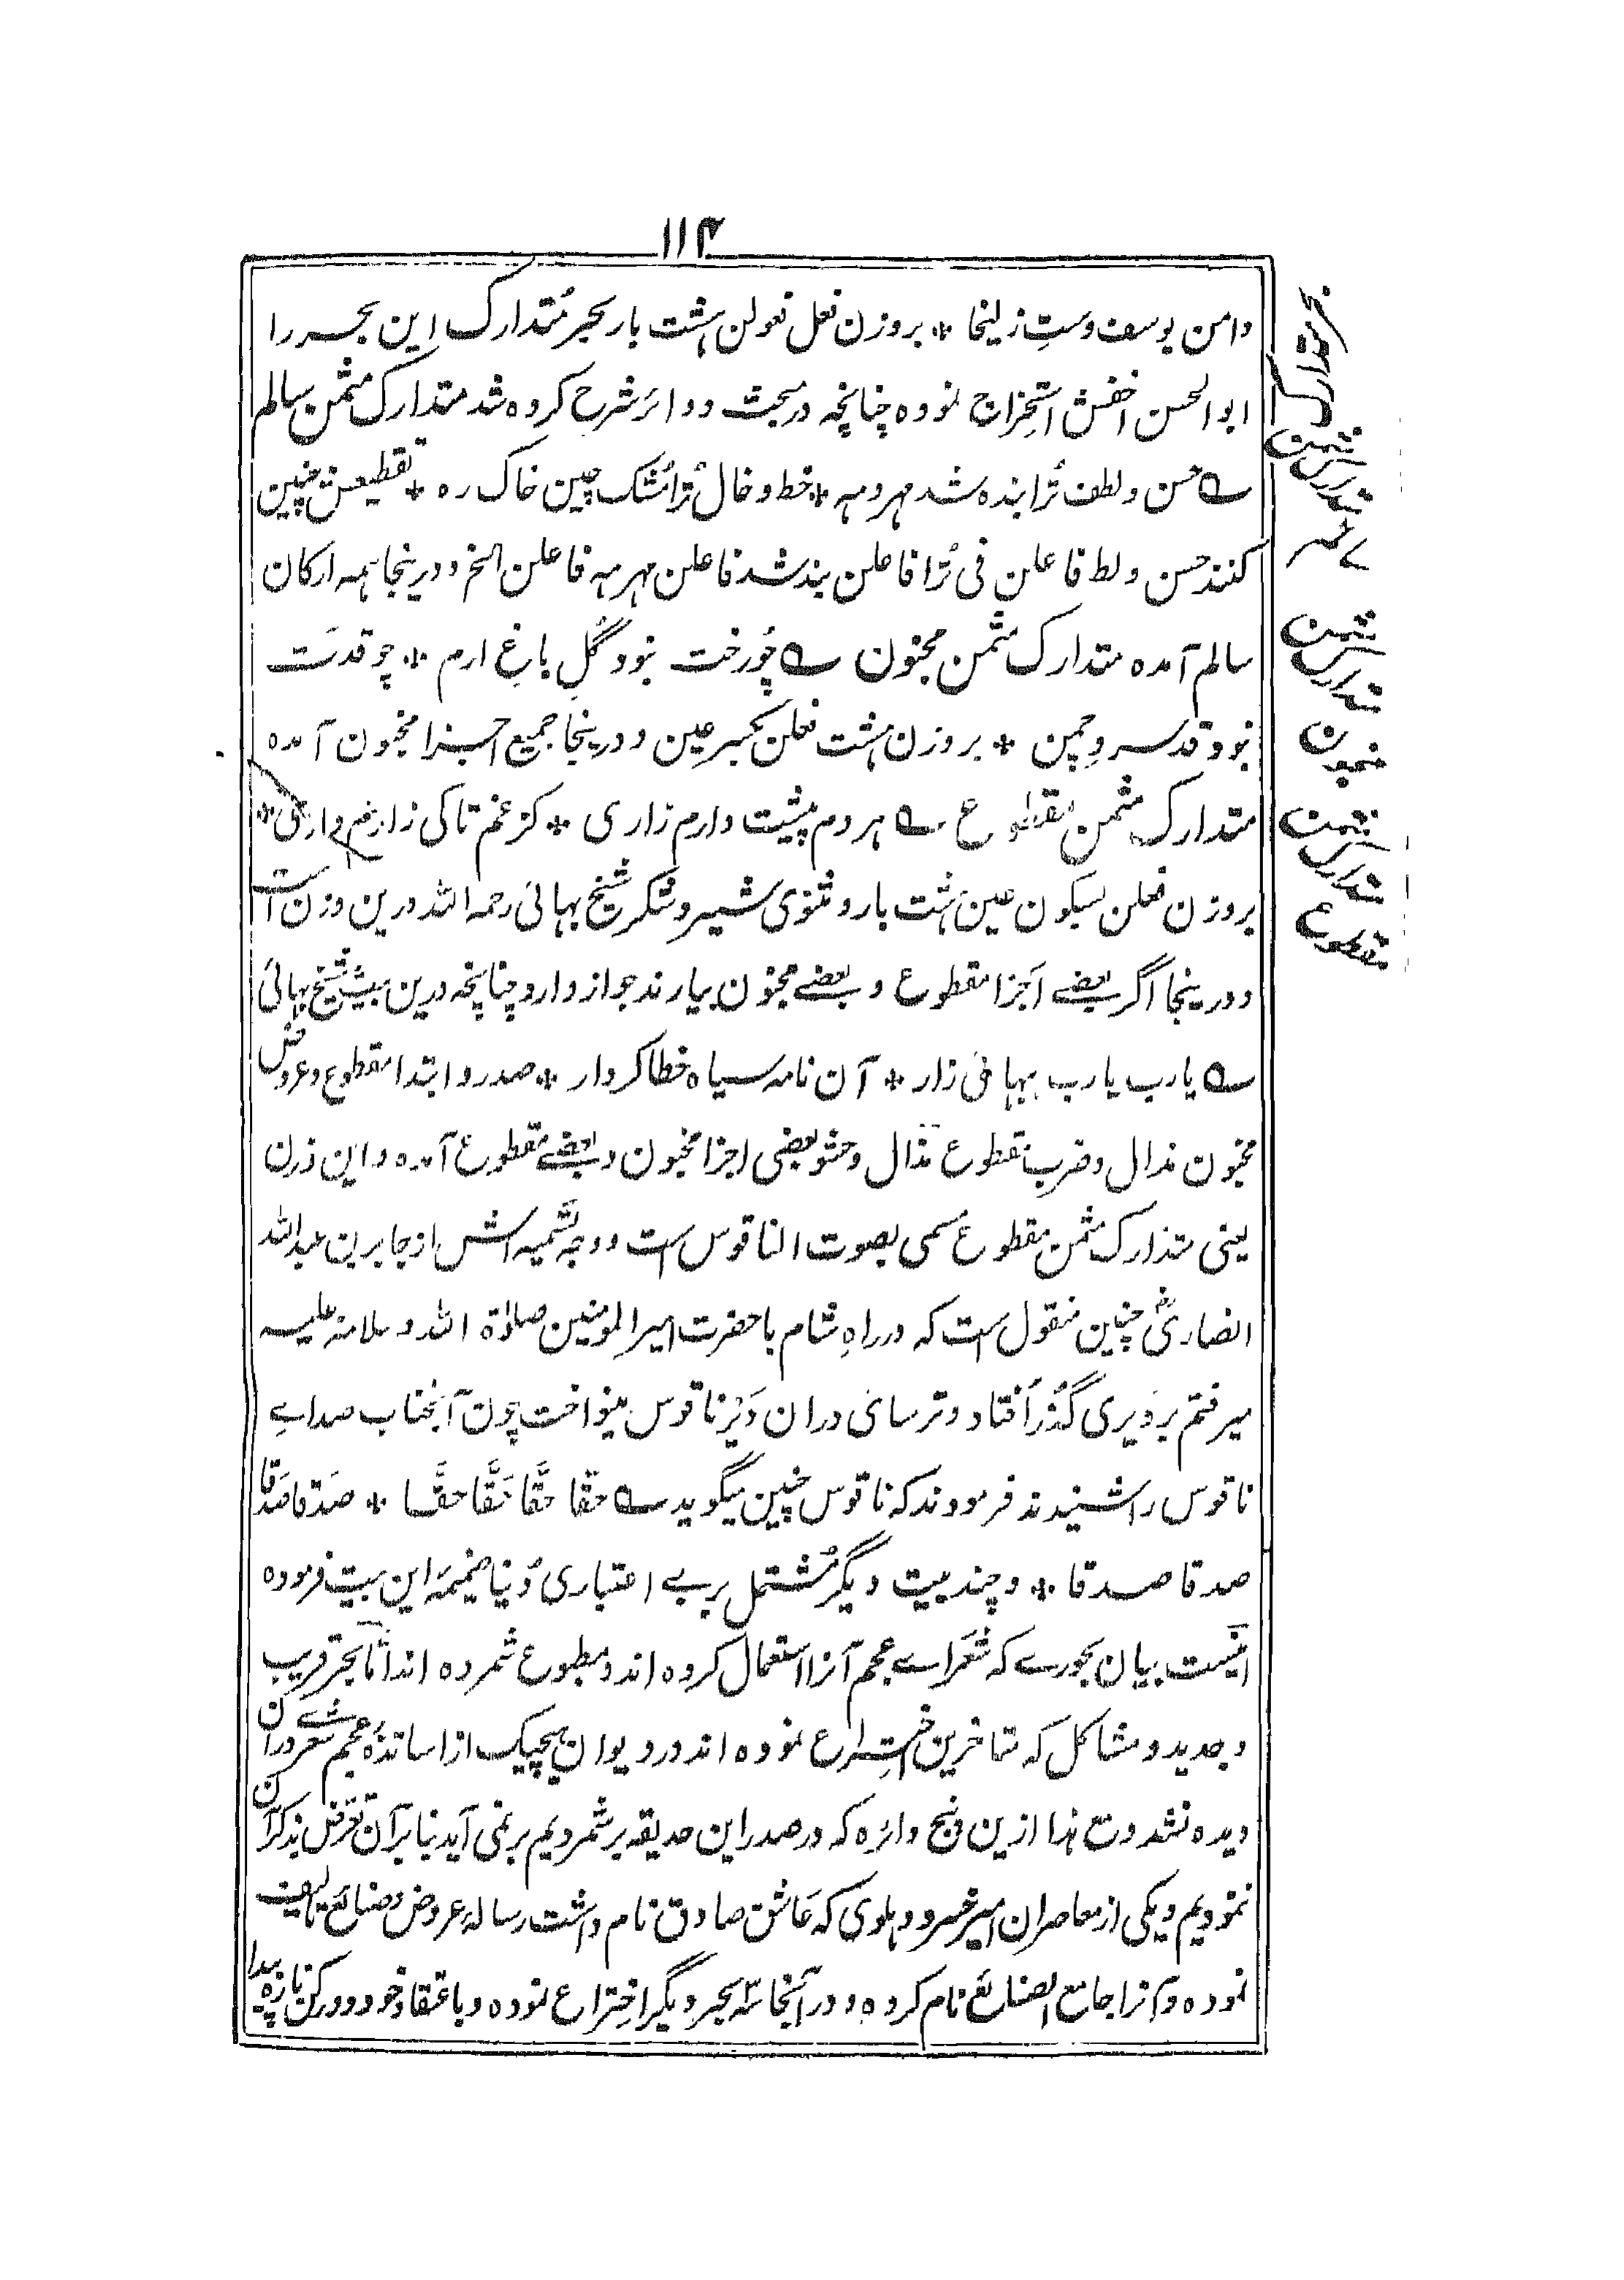 ۱۱۴
دامن یوسف و دستِ زلیخا * بروزن فعل فعولن هشت بار بحر مُتدارک این بحر را
ابوالحسن اخفش استخراج نموده چنانچه در بحث دوائر شرح کرده شد متدارک مثمن سالم
؎ حسن و لطف تُرا بنده شد مهر و مه * خط و خال تُرا مُشک چین خاک ره * تقطیعش چنین
کنند حسن و لط فاعلن فی تُرا فاعلن بند شد فاعلن مهر مه فاعلن الخ و درینجا همه ارکان
سالم آمده متدارک مثمن مخبون ؎ چُو رخت نبود گُلِ باغِ ارم * چو قدَت
نبود قد سروِ چمن * بروزن هشت فعلن بکسر عین و درینجا جمیع اجزا مخبون آمده
متدارک مثمن مقطوع ؎ هر دم پیشت دارم زاری * کز غم تا کی زارم داری *
بروزن فعلن بسکون عین هشت بار و مثنوی شیر و شکر شیخ بهائی رحمه الله درین وزن است
و درینجا اگر بعضے اَجزا مقطوع و بعضے مخبون بیارند جواز دارد چنانچه درین بیت شیخ بهائی
؎ یا رب یا رب بهائی زار * آن نامه سیاه خطا کردار * صدر و ابتدا مقطوع و عروض
مخبون مذال و ضرب مقطوع مذال و حشو بعضی اجزا مخبون و بعضے مقطوع آمده و این وزن
یعنی متدارک مثمن مقطوع مسمی بصوت الناقوس ست و وجه تسمیه اش از جابر بن عبدالله
انصاریؓ چنین منقول ست که در راهِ شام با حضرت امیرالمومنین صلوٰة الله و سلامه علیه
میرفتم بردَیری گُذر اُفتاد و ترسائی دران دَیْر ناقوس مینواخت چون آنجناب صداے
ناقوس را شنیدند فرمودند که ناقوس چنین میگوید ؎ حقّا حقَّا حَقَّا حقَّا * صَدقا صَدقا
صدقا صدقا * و چند بیت دیگر مُشتمل بر بے اعتباری دُنیا ضمیمۀ این بیت فرموده
اینست بیان بحورے که شُعراے عجم آنرا استعمال کرده اند و مطبوع شمرده اند اَمّا بحر قریب
و جدید و مشاکل که متاخرین اختراع نموده اند و در دیوان هیچیک از اساتذهٔ عجم شعرے دران
دیده نشد و مع هذا ازین پنج دائره که در صدر این حدیقه بر شمردیم بر نمی آید بنابرآن تعرّض بذکر آن
ننمودیم و یکی از معاصرانِ امیر خسرو دهلوی که عَاشق صادق نام داشت رسالۀ عروض و صنائع تالیف
نموده و آنرا جامع الصنائع نام کرده و در آنجا سه بحر دیگر اختراع نموده و باعتقاد خود دو رکن تازه پیدا
بحر متدارک
مثمن
متدارک
سالم
مثمن
متدارک
مخبون
مثمن
متدارک
مقطوع